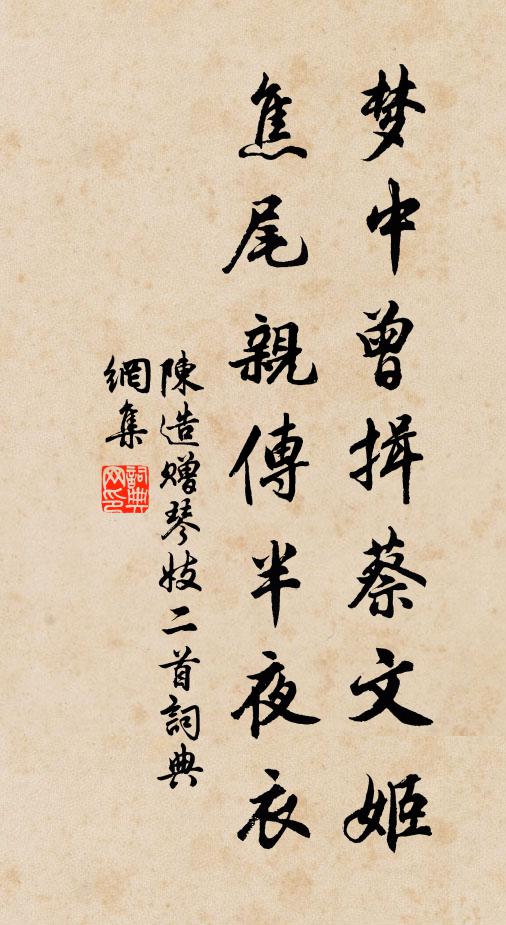 梦中曾揖蔡文姬
焦尾親傳半夜衣
陳造赠琴妓二首詞典
網集
詞典
网印